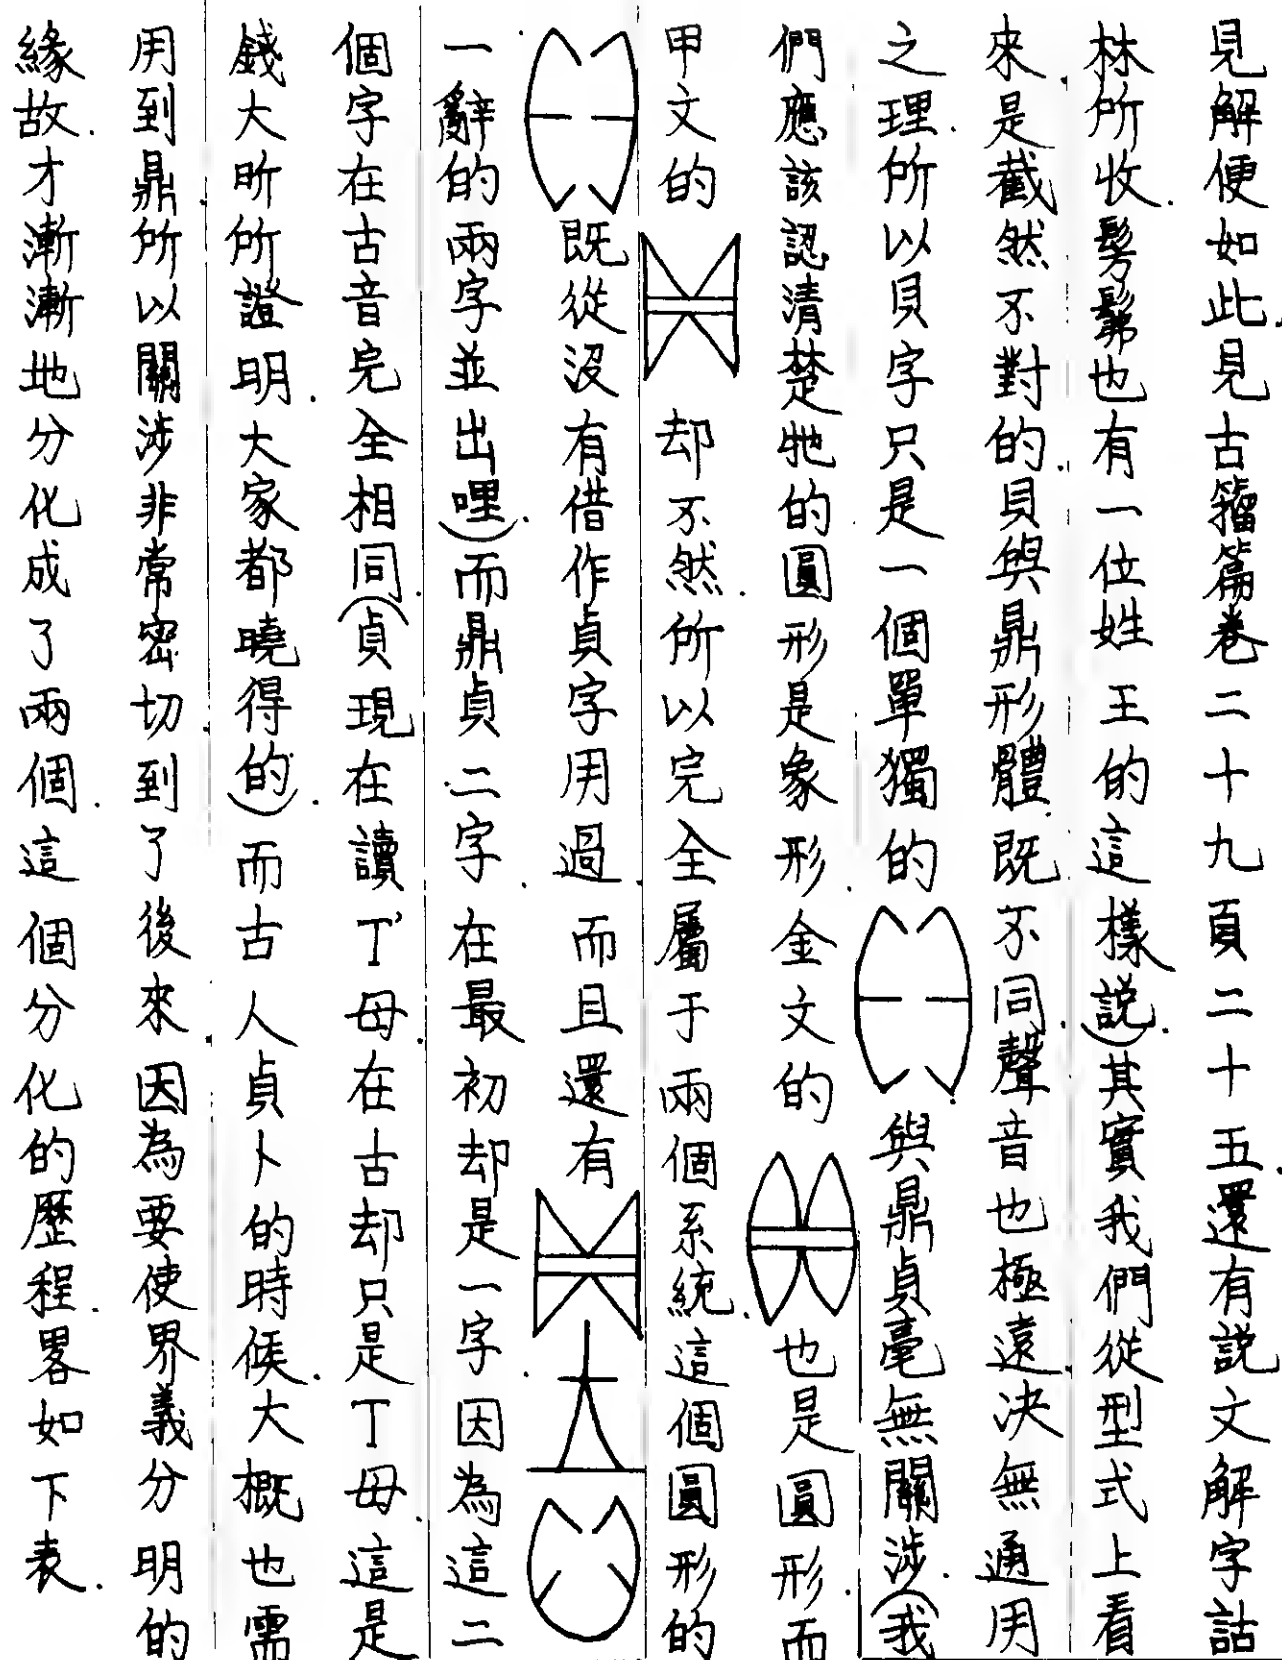 見解便如此.見古籀篇卷二十九頁二十五.還有説文解字詁
林所收.髣髴也有一位姓王的這樣説).其實我們從型式上看
來.是截然不對的.貝與鼎形體.既不同.聲音也極遠.决無通用
之理.所以貝字只是一個單獨的.與鼎貞毫無關涉.(我
們應該認清楚牠的圓形是象形.金文的也是圓形.而
甲文的却不然.所以完全屬于兩個系統.這個圓形的
既從沒有借作貞字用過.而且還有
一辭的兩字並出哩).而鼎貞二字.在最初却是一字.因為這二
個字在古音完全相同.(貞現在讀丁'母.在古却只是丁母.這是
錢大昕所證明.大家都曉得的).而古人貞卜的時候.大概也需
用到鼎.所以關涉非常密切.到了後來.因為要使界義分明的
緣故.才漸漸地分化成了兩個.這個分化的歷程.畧如下表.